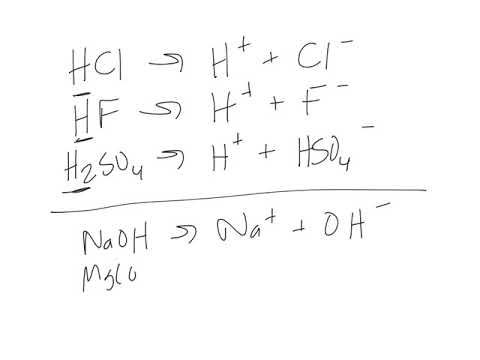 HCl → H⁺ + Cl⁻
HF → H⁺ + F⁻
H₂SO₄ → H⁺ + HSO₄⁻
NaOH → Na⁺ + OH⁻